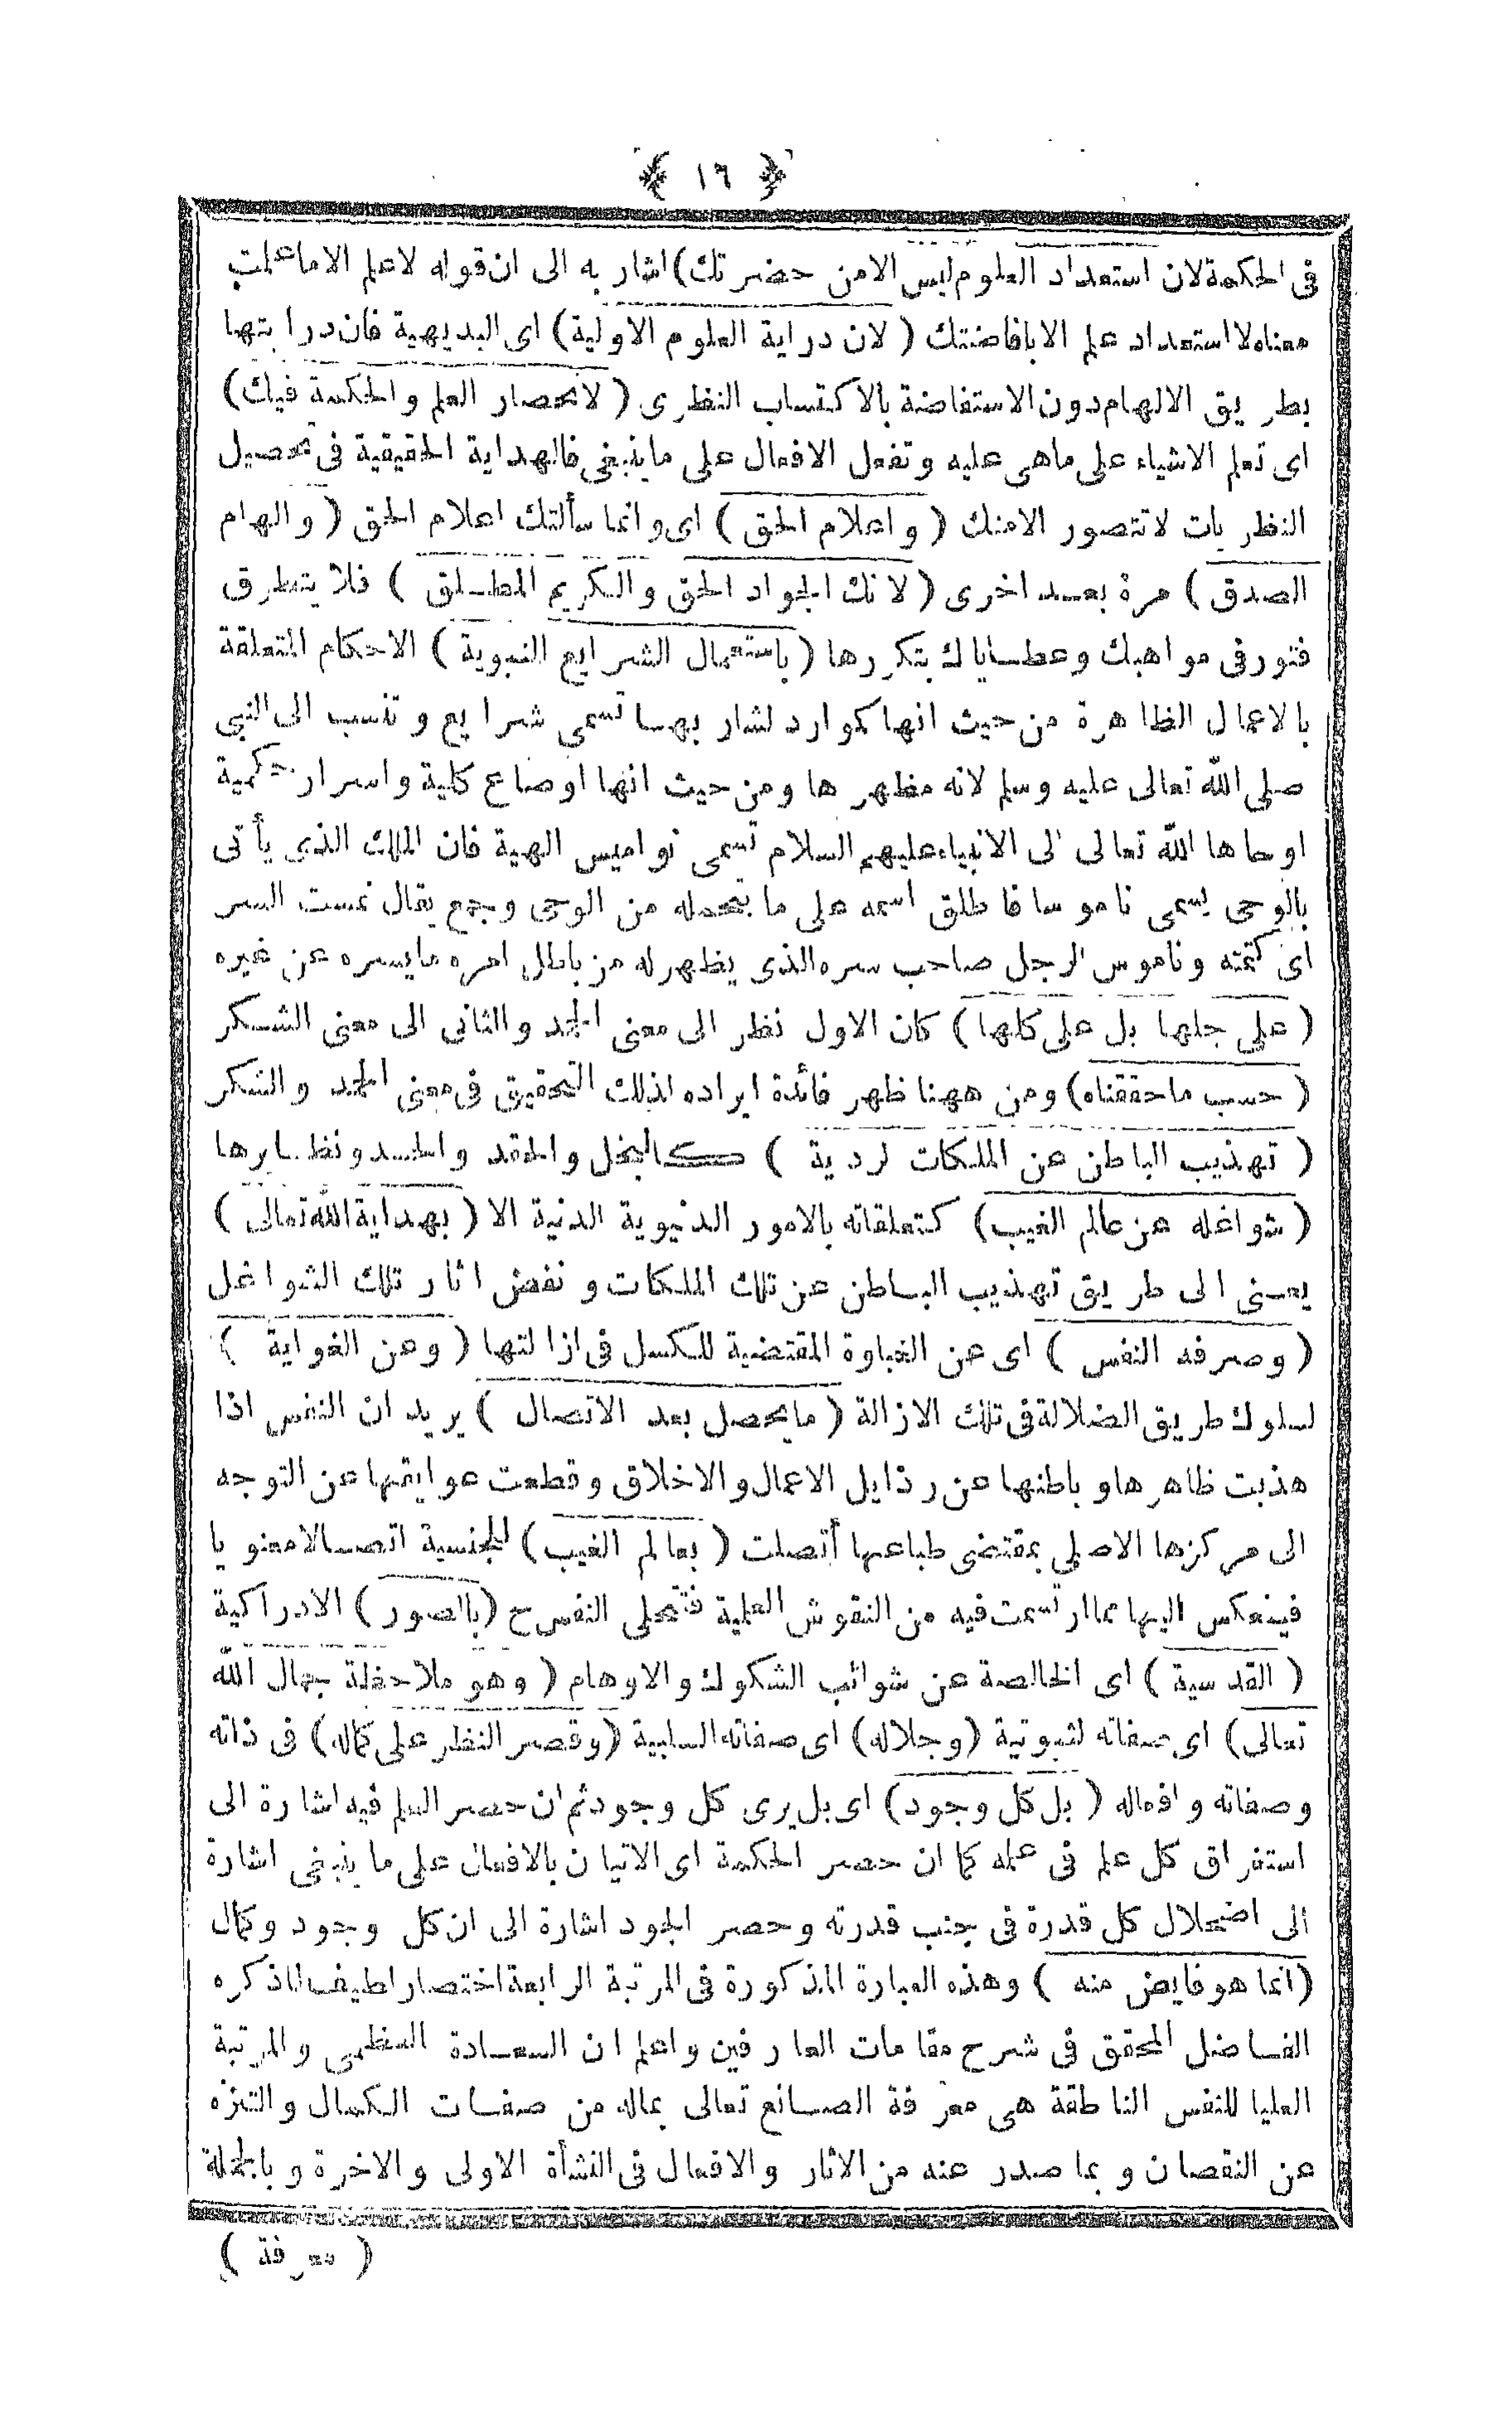 ﴿ ١٦ ﴾
فى الحكمة لان استعداد العلوم ليس الامن حضرتك) اشار به الى ان قوله لاعلم الاماعلمت
معناه لا استعداد علم الابافاضتك ( لان دراية العلوم الاولية) اى البديهية فان درايتها
بطريق الالهام دون الاستفاضة بالاكتساب النظرى ( لانحصار العلم والحكمة فيك)
اى تعلم الاشياء على ماهى عليه وتفعل الافعال على ماينبغى فالهداية الحقيقية فى تحصيل
النظريات لا تتصور الامنك ( واعلام الحق ) اى وانما سألتك اعلام الحق ( والهام
الصدق ) مرة بعد اخرى ( لانك الجواد الحق والكريم المطلق ) فلا يتطرق
فتور فى مواهبك وعطاياك بتكررها ( باستعمال الشرايع النبوية ) الاحكام المتعلقة
بالاعمال الظاهرة من حيث انها كموارد لشاربها تسمى شرايع وتنسب الى النبى
صلى الله تعالى عليه وسلم لانه مظهرها ومن حيث انها اوضاع كلية واسرار حكمية
اوحاها الله تعالى الى الانبياء عليهم السلام تسمى نواميس الهية فان الملك الذى يأتى
بالوحى يسمى ناموسا فاطلق اسمه على ما يتحمله من الوحى وجمع يقال نمست السر
اى كتمته وناموس الرجل صاحب سره الذى يظهر له من باطن امره مايسره عن غيره
( على جلها بل على كلها ) كان الاول نظر الى معنى الحمد والثانى الى معنى الشكر
( حسب ماحققناه) ومن ههنا ظهر فائدة ايراده لذلك التحقيق فى معنى الحمد والشكر
( تهذيب الباطن عن الملكات لردية ) كالبخل والحقد والحسد ونظايرها
( شواغله عن عالم الغيب) كتعلقاته بالامور الدنيوية الدنية الا ( بهداية الله تعالى )
يعنى الى طريق تهذيب الباطن عن تلك الملكات ونفض اثار تلك الشواغل
( وصرفه النفس ) اى عن الغباوة المقتضية للكسل فى ازالتها ( وعن الغواية )
لسلوك طريق الضلالة فى تلك الازالة ( مايحصل بعد الاتصال ) يريد ان النفس اذا
هذبت ظاهرها وباطنها عن رذايل الاعمال والاخلاق وقطعت عوايقها عن التوجه
الى مركزها الاصلى بمقتضى طباعها أتصلت ( بعالم الغيب ) للجنسية اتصالا معنويا
فينعكس اليها مما ارتسمت فيه من النقوش العلمية فتتحلى النفس ح (بالصور ) الادراكية
( القدسية ) اى الخالصة عن شوائب الشكوك والاوهام ( وهو ملاحظة جمال الله
تعالى) اى صفاته لثبوتية (وجلاله) اى صفاته السلبية (وقصر النظر على كماله) فى ذاته
وصفاته وافعاله ( بل كل وجود) اى بل يرى كل وجود ثم ان حصر العلم فيه اشارة الى
استغراق كل علم فى علمه كما ان حصر الحكمة اى الاتيان بالافعال على ماينبغى اشارة
الى اضمحلال كل قدرة فى جنب قدرته وحصر الجود اشارة الى ان كل وجود وكمال
(انما هو فايض منه ) وهذه العبارة المذكورة فى المرتبة الرابعة اختصار لطيف لما ذكره
الفاضل المحقق فى شرح مقامات العارفين واعلم ان السعادة العظمى والمرتبة
العليا للنفس الناطقة هى معرفة الصانع تعالى بماله من صفات الكمال والتنزه
عن النقصان وبما صدر عنه من الاثار والافعال فى النشأة الاولى والاخرة وبالجملة
( معرفة )